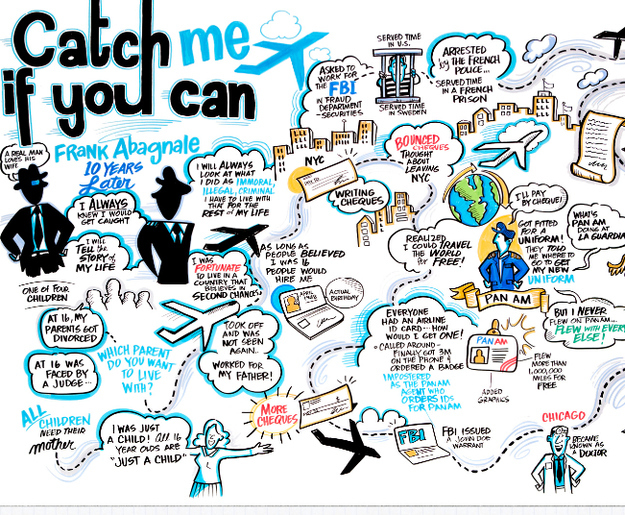 Catch me
if you can
FRANK Abagnale
10 YEARS
Later
A REAL MAN
LOVES HIS
WIFE
I ALWAYS
KNEW I WOULD
GET CAUGHT
I WILL
TELL the
STORY of
MY LIFE
I WILL ALWAYS
LOOK AT WHAT
I DID AS IMMORAL,
ILLEGAL, CRIMINAL
I HAVE TO LIVE WITH
THAT FOR THE
REST of MY LIFE
I WAS
FORTUNATE
TO LIVE IN A
COUNTRY THAT
BELIEVES IN
SECOND CHANCES
ONE OF FOUR
CHILDREN
AT 16, MY
PARENTS GOT
DIVORCED
AT 16 WAS
FACED BY
A JUDGE...
WHICH PARENT
DO YOU WANT
TO LIVE
WITH?
ALL
CHILDREN
NEED THEIR
mother
I WAS JUST
A CHILD! All 16
YEAR OLDS ARE
"JUST A CHILD"
TOOK OFF
AND WAS
NOT SEEN
AGAIN..
WORKED FOR
MY FATHER!
AS LONG AS
PEOPLE BELIEVED
I WAS 16
PEOPLE WOULD
HIRE ME
APRIL
1948
ACTUAL
BIRTHDAY
MORE
CHEQUES
ASKED TO
WORK FOR
the FBI
IN FRAUD
DEPARTMENT
SECURITIES
SERVED TIME
IN U.S.
SERVED TIME
IN SWEDEN
ARRESTED
by THE FRENCH
POLICE...
SERVED TIME
IN A FRENCH
PRISON
NYC
BOUNCED
CHEQUES
THOUGHT
ABOUT
LEAVING
NYC
WRITING
CHEQUES
REALIZED
I COULD TRAVEL
THE WORLD
for FREE!
I'LL PAY
BY CHEQUE!
GOT FITTED
FOR A
UNIFORM!
THEY TOLD
ME WHERE
TO GO TO GET
MY NEW
UNIFORM
WHAT'S
PAN AM
DOING AT
LA GUARDIA
PAN AM
BUT I NEVER
FLEW ON PAN AM...
FLEW WITH EVERY
ELSE!
EVERYONE
HAD AN AIRLINE
ID CARD... HOW
WOULD I GET ONE!
-CALLED AROUND-
FINALLY GOT 3M
ON THE PHONE &
ORDERED A BADGE
IMPOSTERED
AS THE PAN AM
AGENT WHO
ORDERS IDS
FOR PAN AM
PAN AM
ADDED
GRAPHICS
FLEW
MORE THAN
1,000,000
MILES FOR
FREE
FBI
FBI ISSUED
A JOHN DOE
WARRANT
CHICAGO
BECAME
KNOWN AS
A DOCTOR